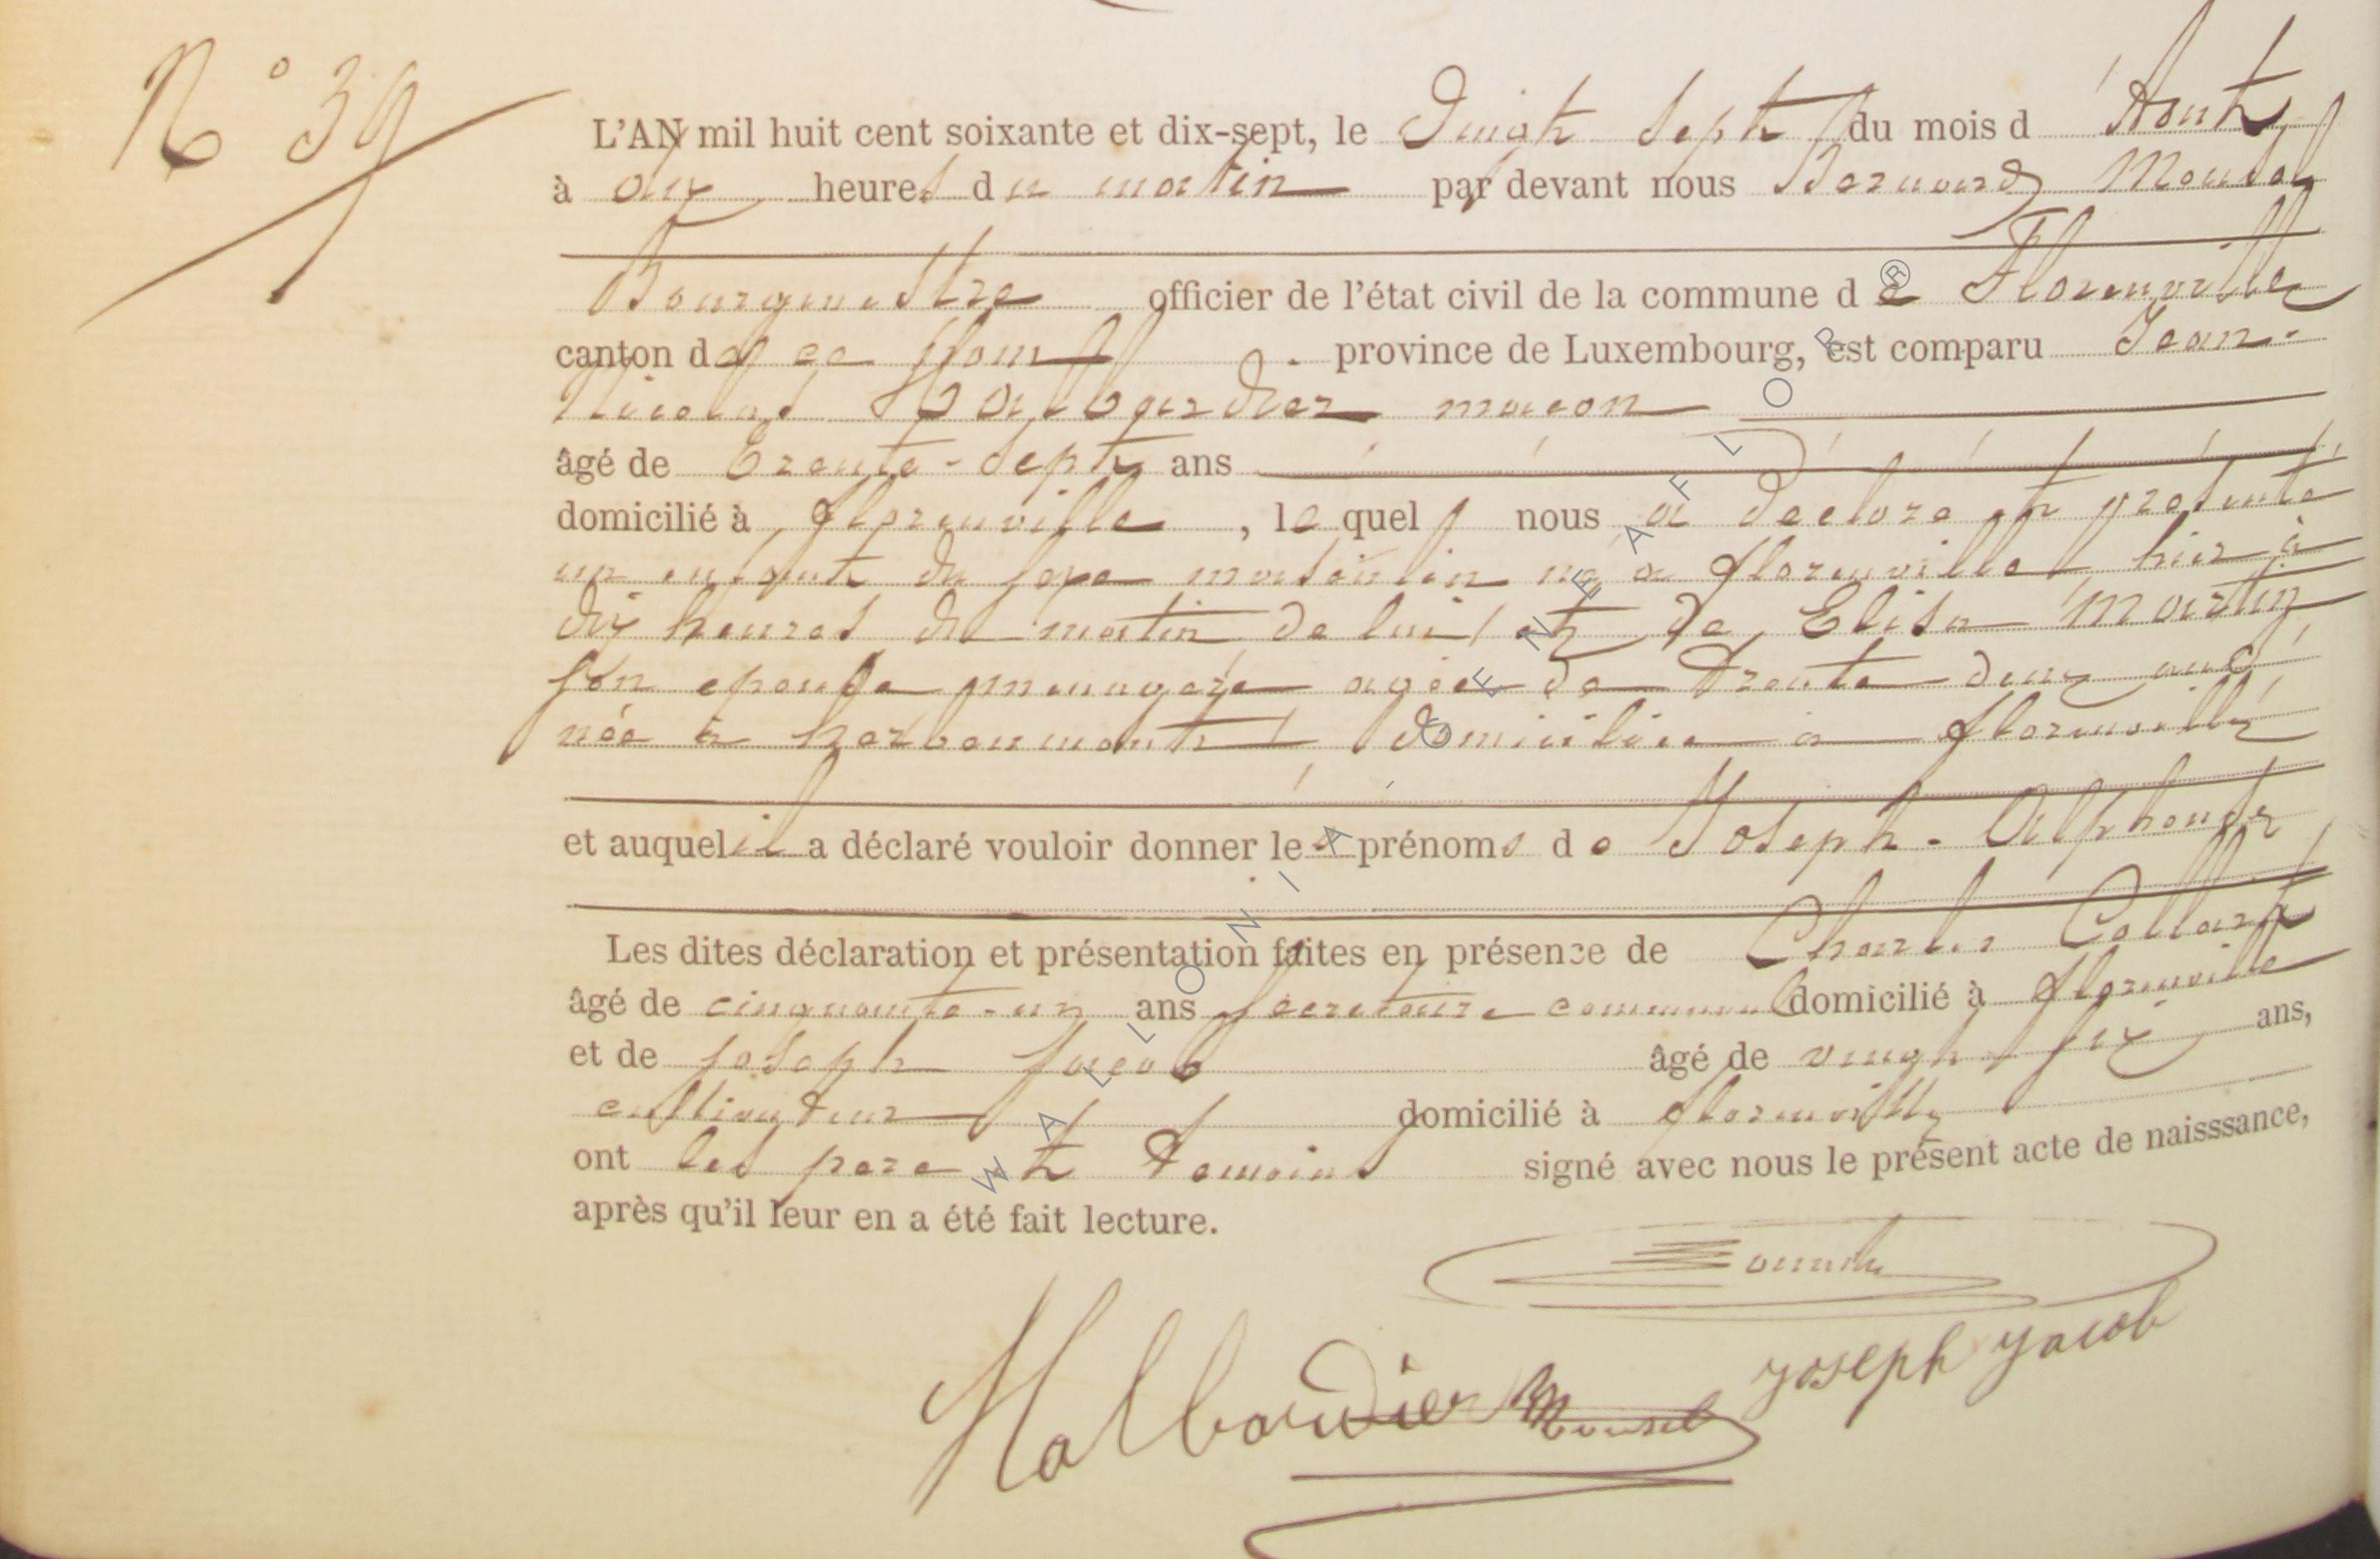 N° 39
L'AN mil huit cent soixante et dix-sept, le Vingt Sept du mois d'Aout
à onze heures du matin par devant nous Bernard Mousel
Bourgmestre officier de l'état civil de la commune de Florenville
canton de ce nom province de Luxembourg, est comparu Jean-
Nicolas Halbardier maçon
âgé de trente-sept ans
domicilié à florenville, lequel nous a déclaré et présenté
un enfant du sexe masculin né à florenville hier à
dix heures du matin de lui et de Elisa Martin
son epouse menagère agée de trente deux ans
née à herbeumont domiciliée à florenville
et auquel il a déclaré vouloir donner les prénoms de Joseph-Alphonse
Les dites déclaration et présentation faites en présence de Charles Collart
âgé de cinquante-un ans secretaire communal domicilié à florenville
et de joseph jacob âgé de vingt-six ans,
cultivateur domicilié à florenville
ont les pere et temoins signé avec nous le présent acte de naisssance,
après qu'il leur en a été fait lecture.
Halbardier Mousel Joseph Jacob
WALLONIA - GENEAFLOR ®